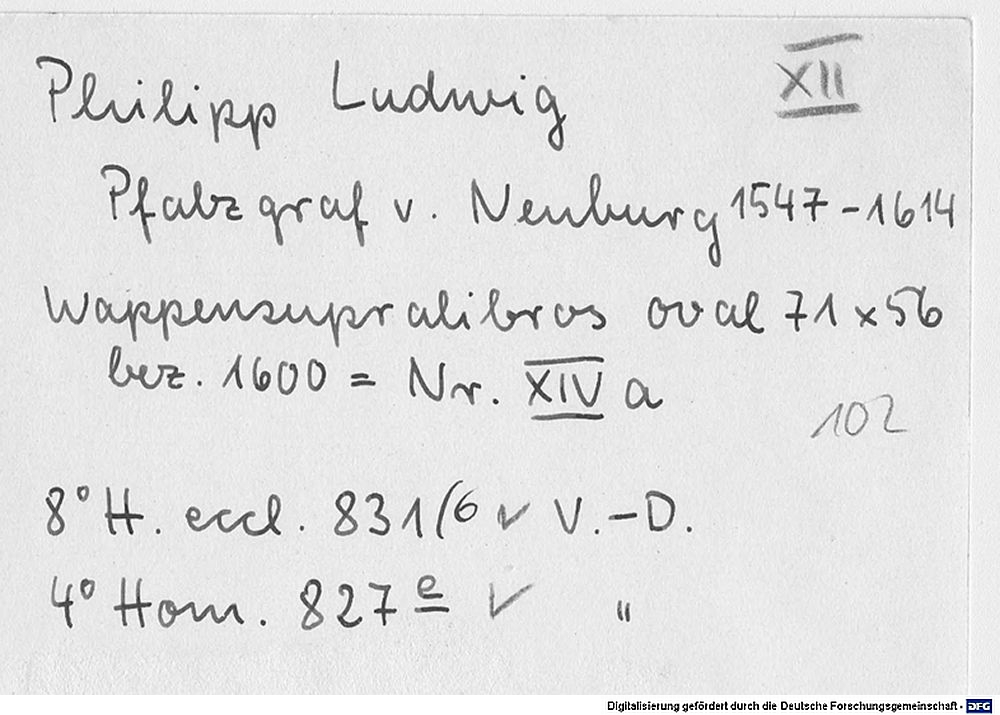 Philipp Ludwig XII
Pfalzgraf v. Neuburg 1547-1614
Wappensupralibros oval 71 x 56
bez. 1600 = Nr. XIV a
102
8° H. eccl. 831/6 ✓ V.-D.
4° Hom. 827 e ✓ "
Digitalisierung gefördert durch die Deutsche Forschungsgemeinschaft - DFG